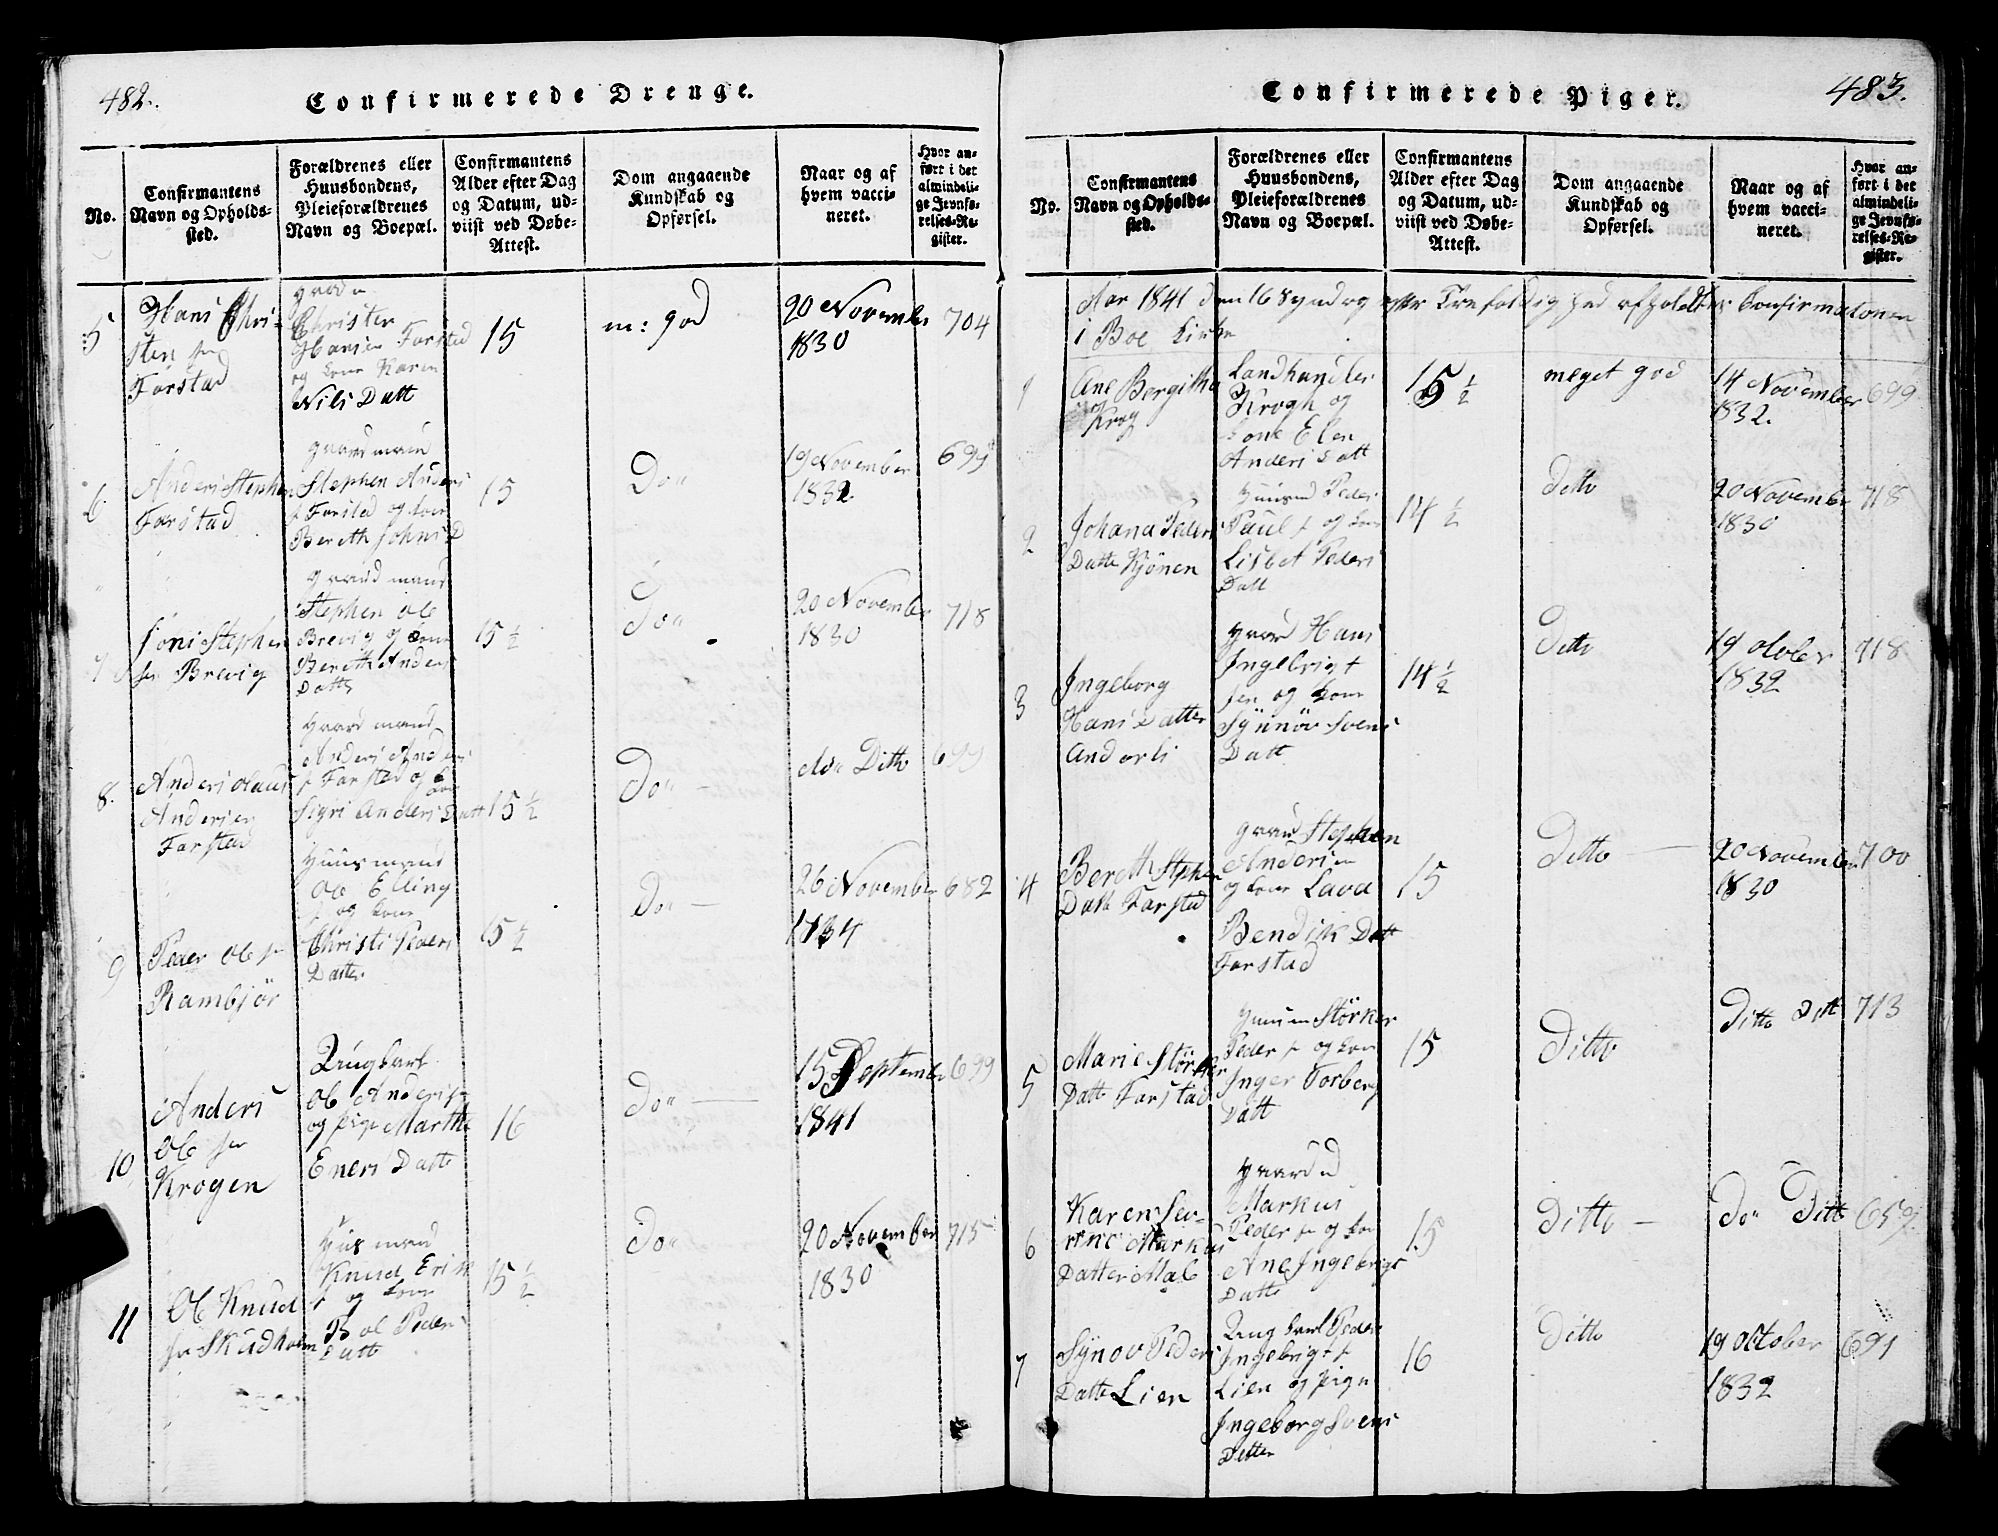 482.
Confirmerede Drenge.
No.
Confirmantens
Navn og Opholds-
sted.
Forældrenes eller
Huusbondens,
Pleieforældrenes
Navn og Boepæl.
Confirmantens
Alder efter Dag
og Datum, ud-
viist ved Døbe-
Attest.
Dom angaaende
Kundskab og
Opførsel.
Naar og af
hvem vacci-
neret.
Hvor an-
ført i det
almindeli-
ge Jevnfø-
relses-Re-
gister.
5
Hans Chri-
sten
Farstad
Christen
Hansen Farstad
og kone Karen
Nils Datt
15
m: god
20 November
1830
704
6
Anders Stephen
Farstad
Gaardmand
Stephen Anders
Farstad og kone
Bereth Johns D
15
Do
19 November
1832
699
7
Jons Stephen
Brevig
Gaardmand
Stephen Ole
Brevig og kone
Bereth Anders
Datter
15 ½
Do
20 November
1830
718
8.
Anders Olaus
Andersen
Farsted
Gaardmand
Anders Anders
Farsted og
kone
Sigri Anders Datt
15 ½
Do
do Ditto
699
9
Peder Ole
Rambjør
Huusmand
Ole Elling
og kone
Christi Peders
Datter
15 ½
Do
26 November
1834
682
10
Anders
Ole
Krogen
Ungkarl
Ole Anders
og pige Marthe
Eners Datte
16
Do
15 September
1841
699
11
Ole Knud
Skudholm
Husmand
Knud Erik
og kone
Bol Peders
Datte
15 ½
Do
20 November
1830
715
483.
Confirmerede Piger.
No.
Confirmantens
Navn og Opholds-
sted.
Forældrenes eller
Huusbondens,
Pleieforældrenes
Navn og Boepæl.
Confirmantens
Alder efter Dag
og Datum, ud-
viist ved Døbe-
Attest.
Dom angaaende
Kundskab og
Opførsel.
Naar og af
hvem vacci-
neret.
Hvor an-
ført i det
almindeli-
ge Jevnfø-
relses-Re-
gister.
Aar 1841 den 16 Syndag efter Trefoldighed afholdtes Confirmationen
i Boe Kirke
1
Ane Bergitha
Krog
Landhandler
Krogh og
kone Elen
Anders Datt
15 ½
meget god
14 November
1832.
699
2
Johana Peders
Datte Kjönen
Huusmd Peder
Paul og kone
Lisbet Peders
Datt
14 ½
Ditto
20 November
1830
718
3
Ingeborg
Hans Datter
Andorli
Gaard Hans
Ingebrigt
sen og kone
Synnöv Svens
Datt
14 ½
Ditto
19 Octber
1832
718
4
Bereth Stphen
Datt Farsted
Gaard Stephen
Andersen
og kone Lava
Bendik Datt
Farstad
15
Ditto
20 November
1830
700
5
Marie Störker
Datte Farstad
Störker
Peder og kone
Inger Torberg
Datt
15
Ditto
Ditto Ditt
713
6
Karen Sev-
rine Markus
Datter Mæl
Markus
Peder og kone
Ane Ingebrigt
Datte
15
Ditto
Do Ditto
659
7
Synov Peders
Datte Lien
Ung karl Peder
Ingebrigt
Lien og pige
Ingeborg Svens
Datter
16
Ditto
19 October
1832
691